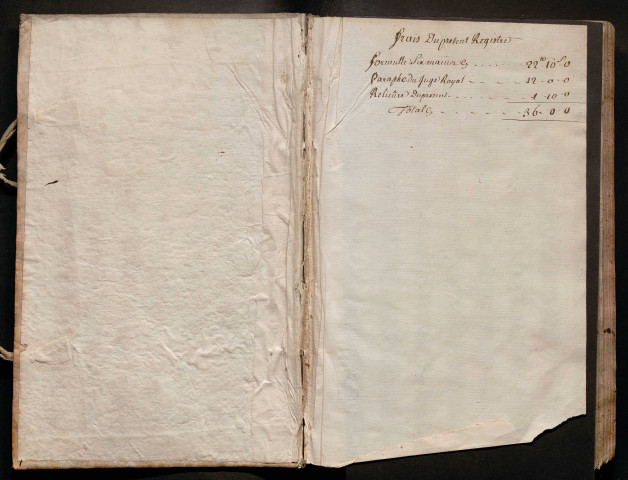 frais Dupresent Registre
formulle Six mains 22ᵗᵗ 10ˢ 0
Paraphe du Juge Royal - - - - 12 - 0 - 0
Relieure Dupresent - - - - 1 - 10 - 0
Totalle - - - - - 36 - 0 0